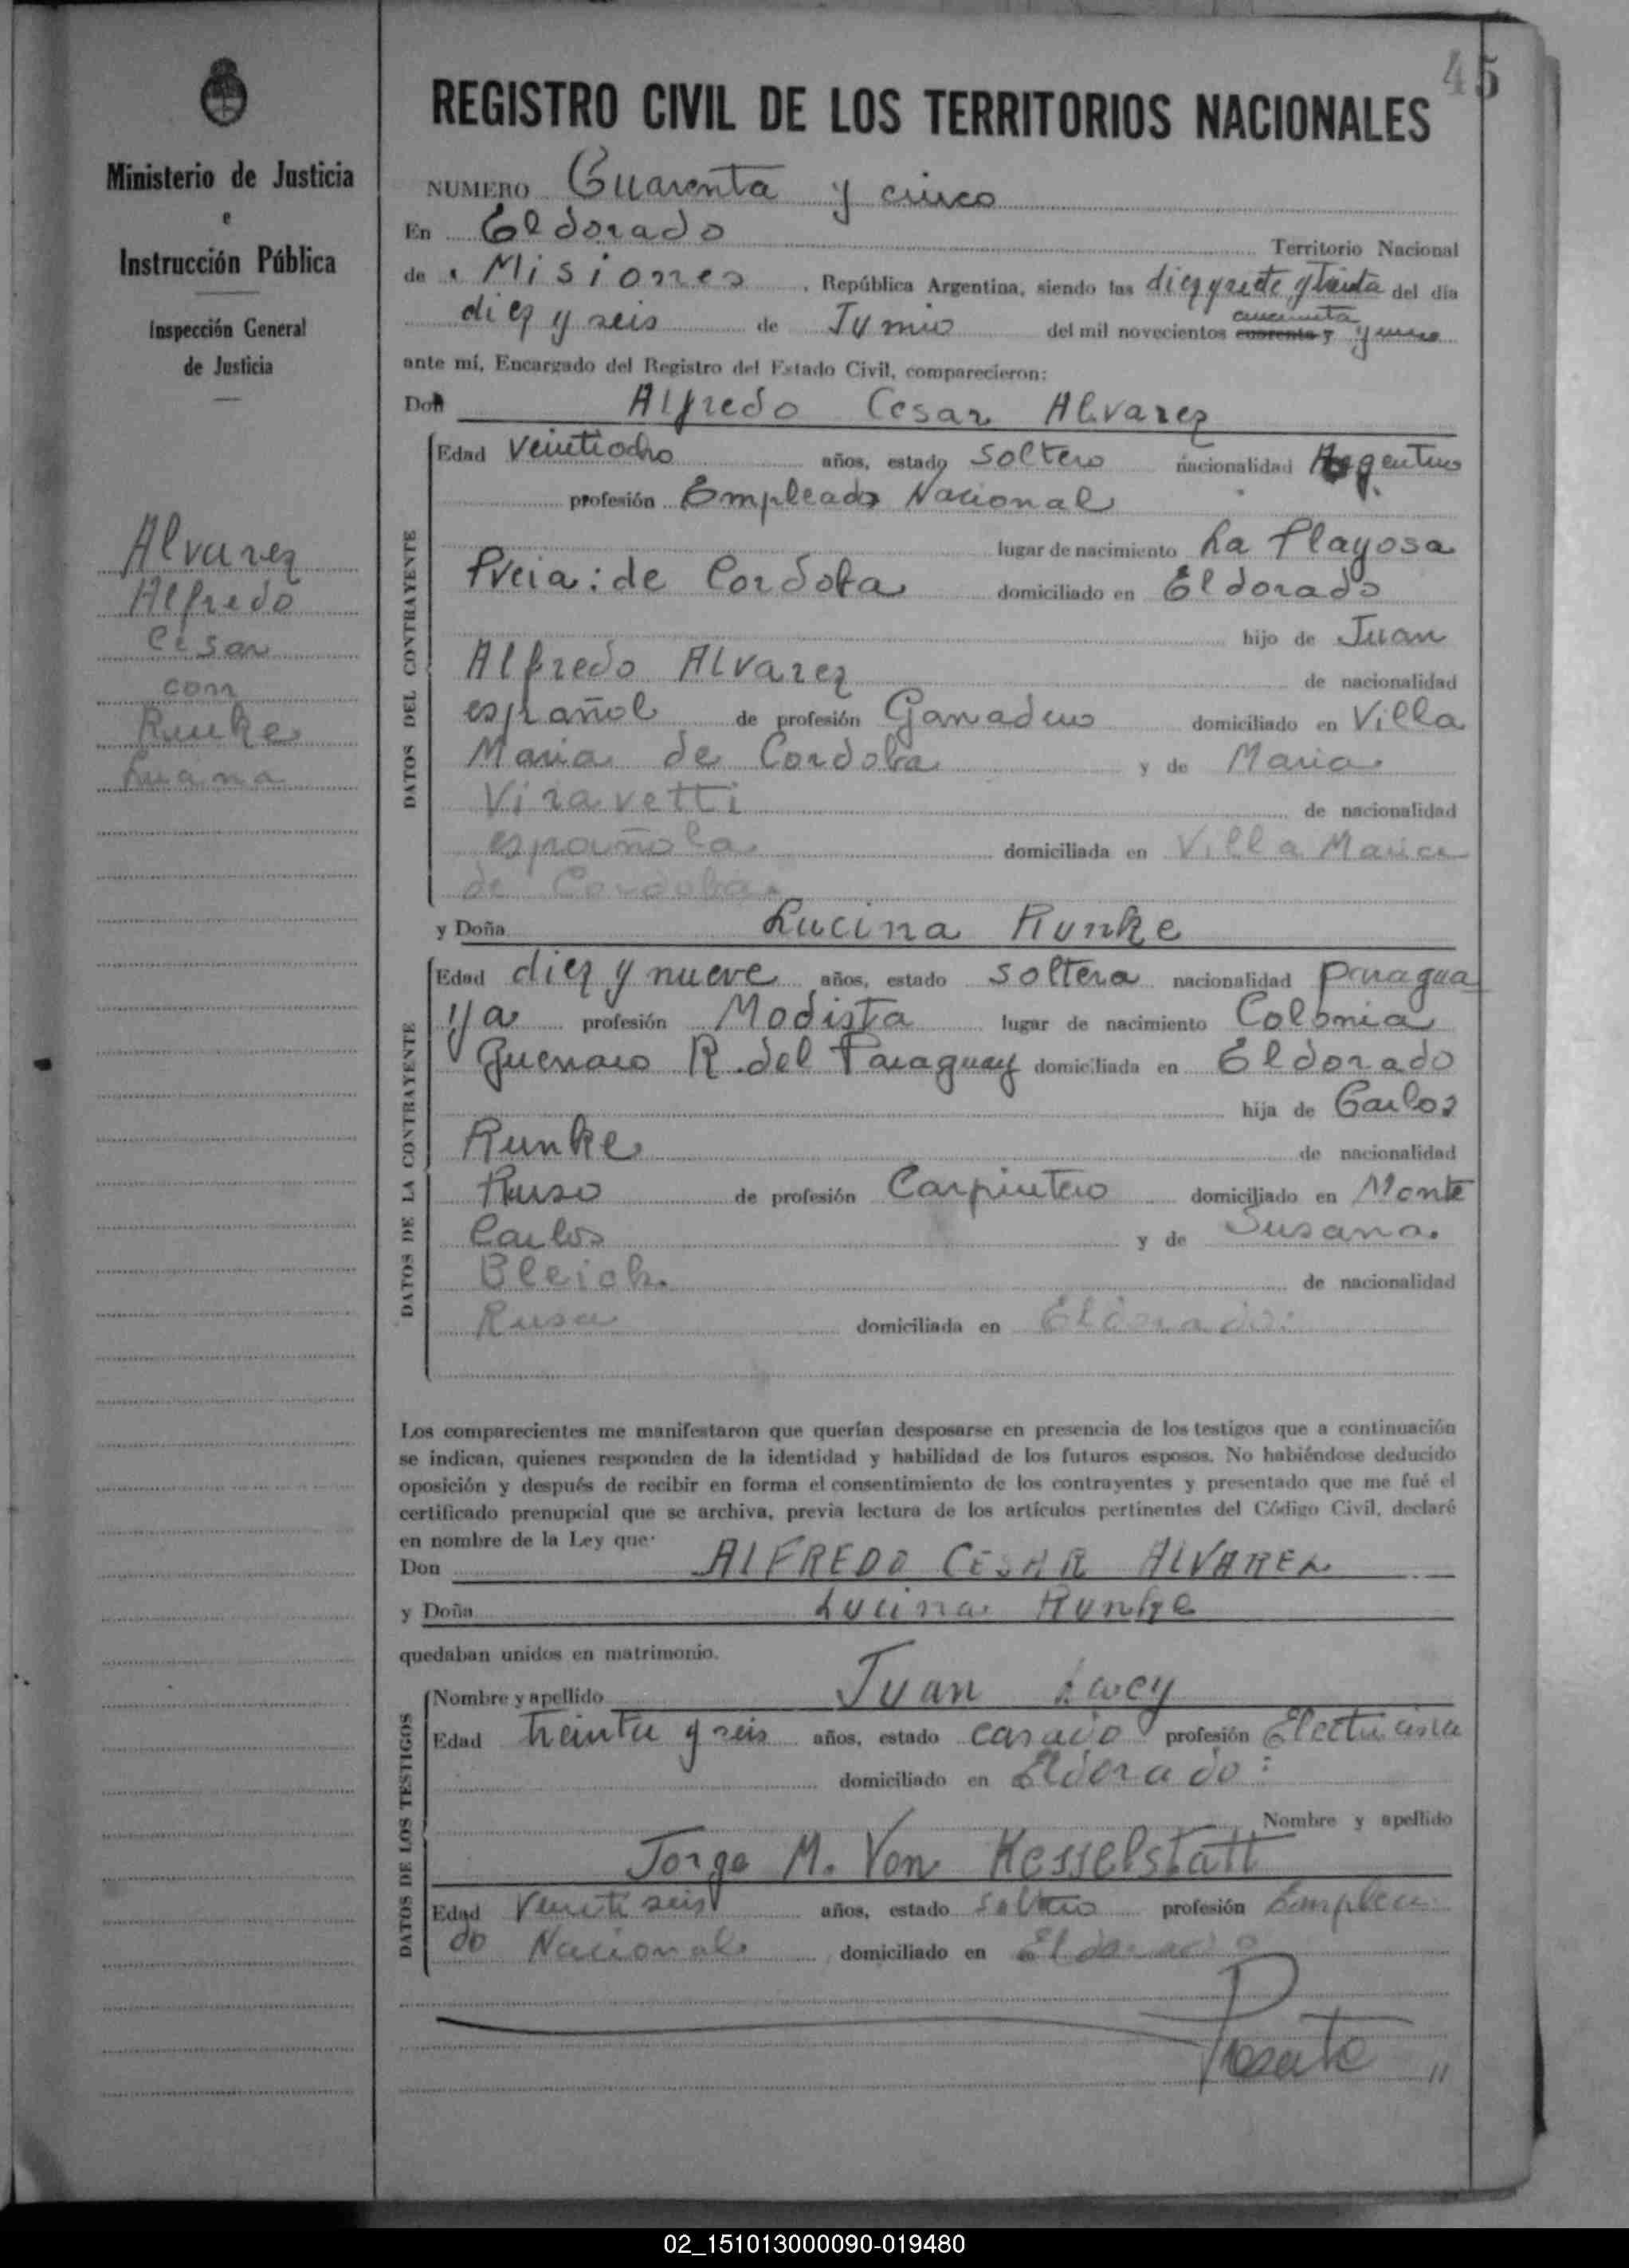 45
Ministerio de Justicia
e
Instrucción Pública
Inspección General
de Justicia
Alvarez
Alfredo
Cesar
con
Runke
REGISTRO CIVIL DE LOS TERRITORIOS NACIONALES
NUMERO Cuarenta y cinco
En Eldorado Territorio Nacional
de Misiones, República Argentina, siendo las diez y siete y treinta del día
cincuenta
diez y seis de Junio del mil novecientos cuarenta y
ante mí, Encargado del Registro del Estado Civil, comparecieron:
Don Alfredo Cesar Alvarez
DATOS DEL CONTRAYENTE
Edad veintiocho años, estado soltero nacionalidad Argentino
profesión Empleado Nacional
lugar de nacimiento La Playosa
Pvcia: de Cordoba domiciliado en Eldorado
hijo de Juan
Alfredo Alvarez de nacionalidad
español de profesión Ganadero domiciliado en Villa
Maria de Cordoba y de Maria
Viravetti de nacionalidad
española domiciliada en Villa Maria
de Cordoba
y Doña Lucina Runke
DATOS DE LA CONTRAYENTE
Edad diez y nueve años, estado soltera nacionalidad paragua
ya profesión Modista lugar de nacimiento Colonia
R. del Paraguay domiciliada en Eldorado
hija de Carlos
Runke de nacionalidad
Ruso de profesión Carpintero domiciliado en Monte
Carlos y de Susana
Bleich de nacionalidad
Rusa domiciliada en Eldorado
Los comparecientes me manifestaron que querían desposarse en presencia de los testigos que a continuación
se indican, quienes responden de la identidad y habilidad de los futuros esposos. No habiéndose deducido
oposición y después de recibir en forma el consentimiento de los contrayentes y presentado que me fué el
certificado prenupcial que se archiva, previa lectura de los artículos pertinentes del Código Civil, declaré
en nombre de la Ley que:
Don ALFREDO CESAR ALVAREZ
y Doña Lucina Runke
quedaban unidos en matrimonio.
DATOS DE LOS TESTIGOS
Nombre y apellido Juan
Edad treinta y seis años, estado casado profesión Electricista
domiciliado en Eldorado:
Nombre y apellido
Jorge M. Von Kesselstatt
Edad Veinti seis años, estado soltero profesión Emplea
do Nacional domiciliado en Eldorado
02_151013000090-019480